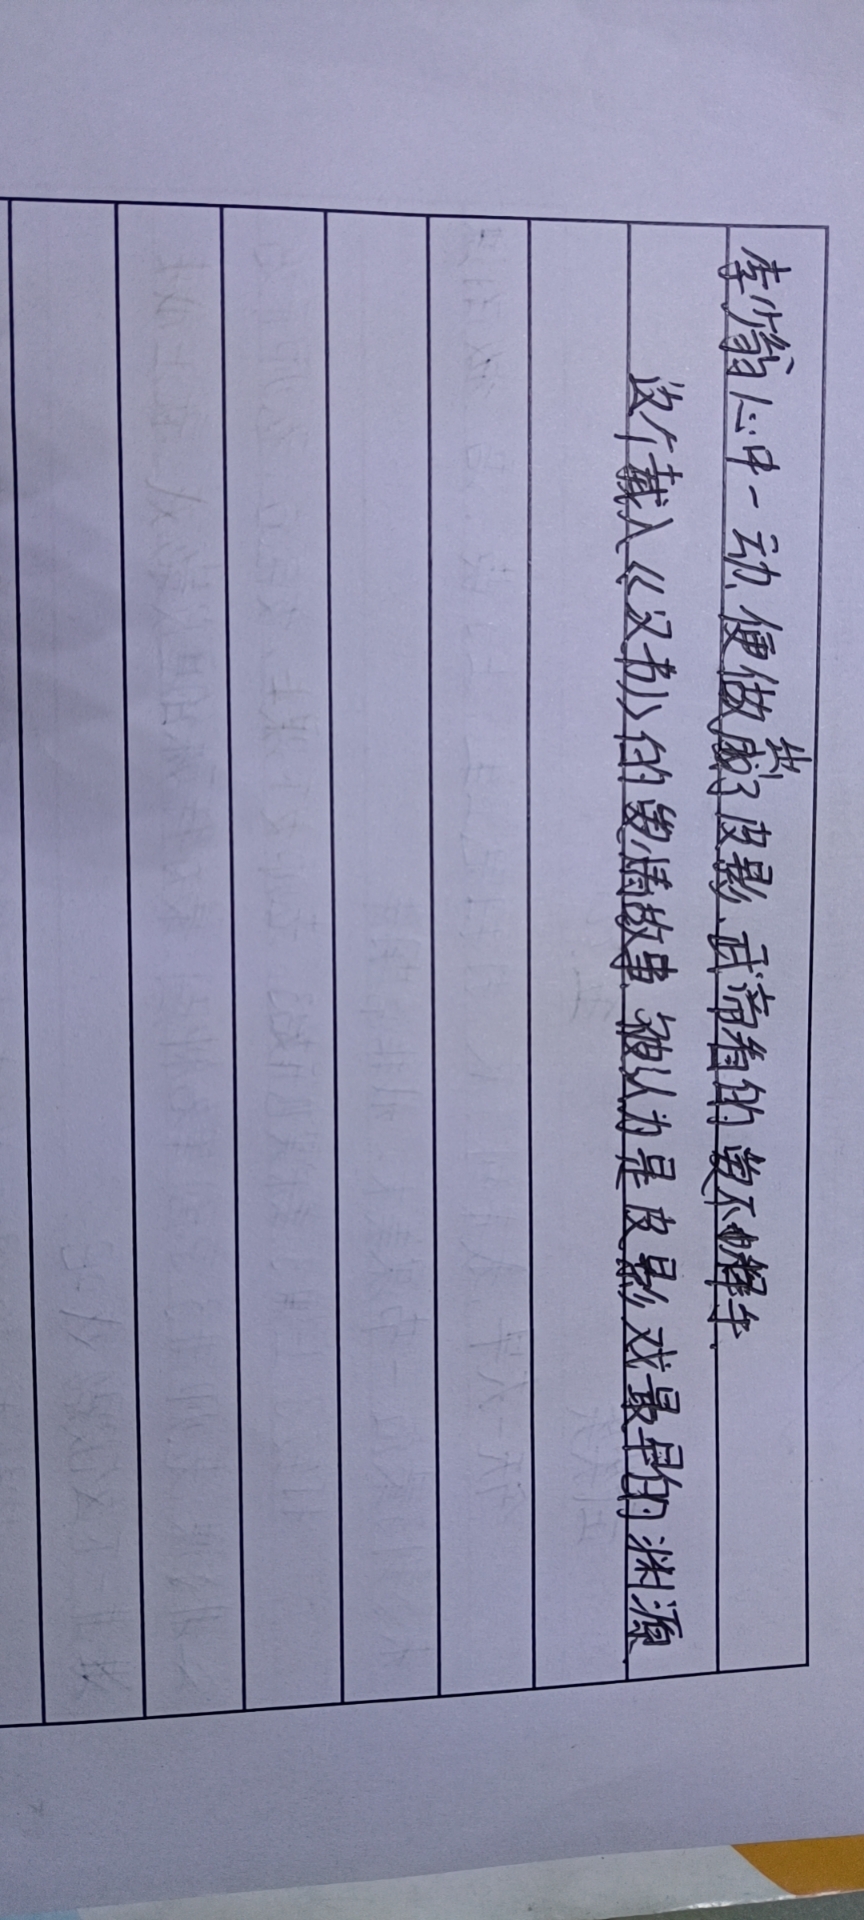 李少翁心中一动、便做成了皮影、武帝看的爱不释手
这个载入《汉书》的爱情故事、被认为是皮影戏最早的渊源